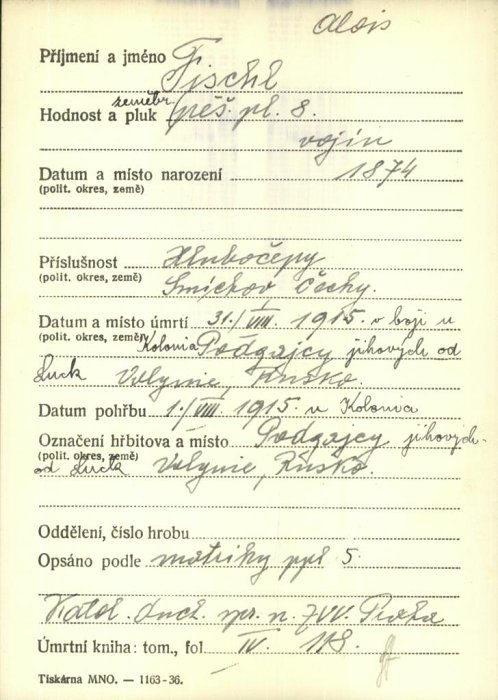 Alois
Příjmení a jméno Fischl
zeměbr.
Hodnost a pluk pěš. pl. 8.
vojín
Datum a místo narození 1874
(polit. okres, země)
Příslušnost Hlubočepy
(polit. okres, země) Smíchov Čechy.
Datum a místo úmrtí 31./VIII. 1915. v boji u
(polit. okres, země) Kolonia Podgajcy jihových. od
Luck Volynie, Rusko.
Datum pohřbu 1./VIII. 1915. u Kolonia
Označení hřbitova a místo Podgajcy jihových.
(polit. okres, země)
od Lucka Volynie, Rusko.
Oddělení, číslo hrobu
Opsáno podle matriky ppl 5.
Katol. duch. spr. n. ZVV. Praha
Úmrtní kniha: tom., fol IV. 118.
Tiskárna MNO. — 1163-36.